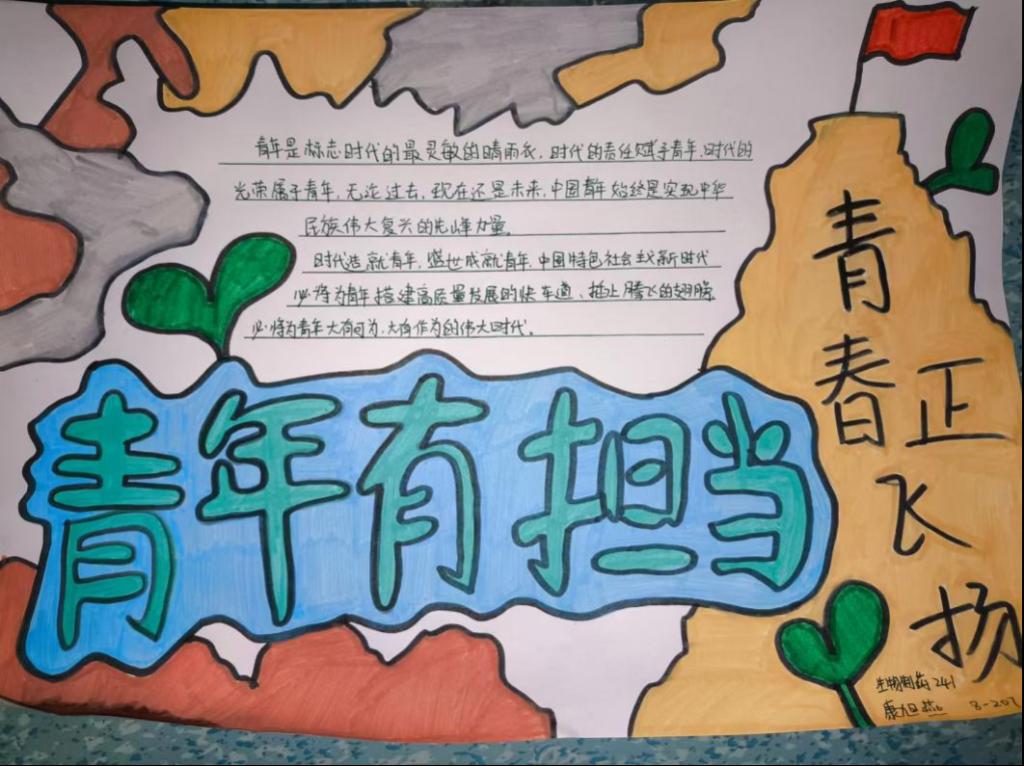 青年是标志时代的最灵敏的晴雨表,时代的责任赋予青年,时代的
光荣属于青年,无论过去,现在还是未来,中国青年始终是实现中华
民族伟大复兴的先峰力量。
时代造就青年,盛世成就青年,中国特色社会主义新时代
必将为青年搭建高质量发展的快车道、插上腾飞的翅膀,
必将为青年大有可为,大有作为的伟大时代。
青年有担当
青春
正飞扬
生物制药241
康旭
8-207